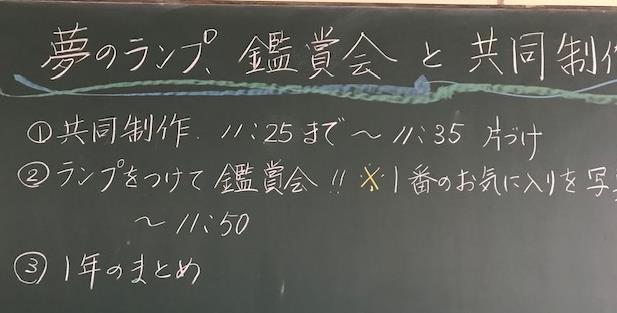 夢のランプ、鑑賞会と共同制作
①共同制作. 11:25まで〜11:35 片づけ
②ランプをつけて鑑賞会!! ※1番のお気に入りを写
〜11:50
③1年のまとめ